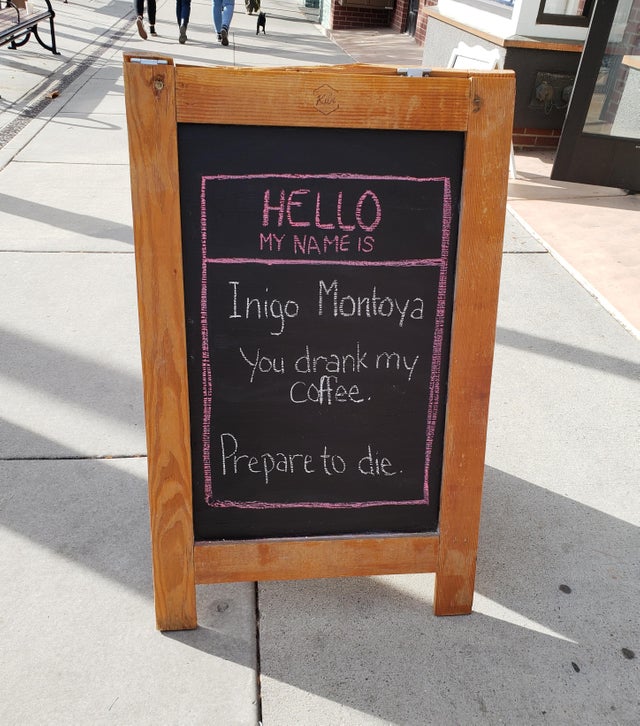 HELLO
MY NAME IS
Inigo Montoya
You drank my
coffee.
Prepare to die.